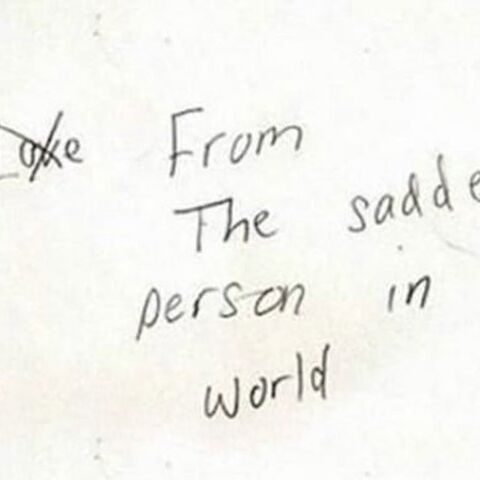 Love From
The sadde
person in
world